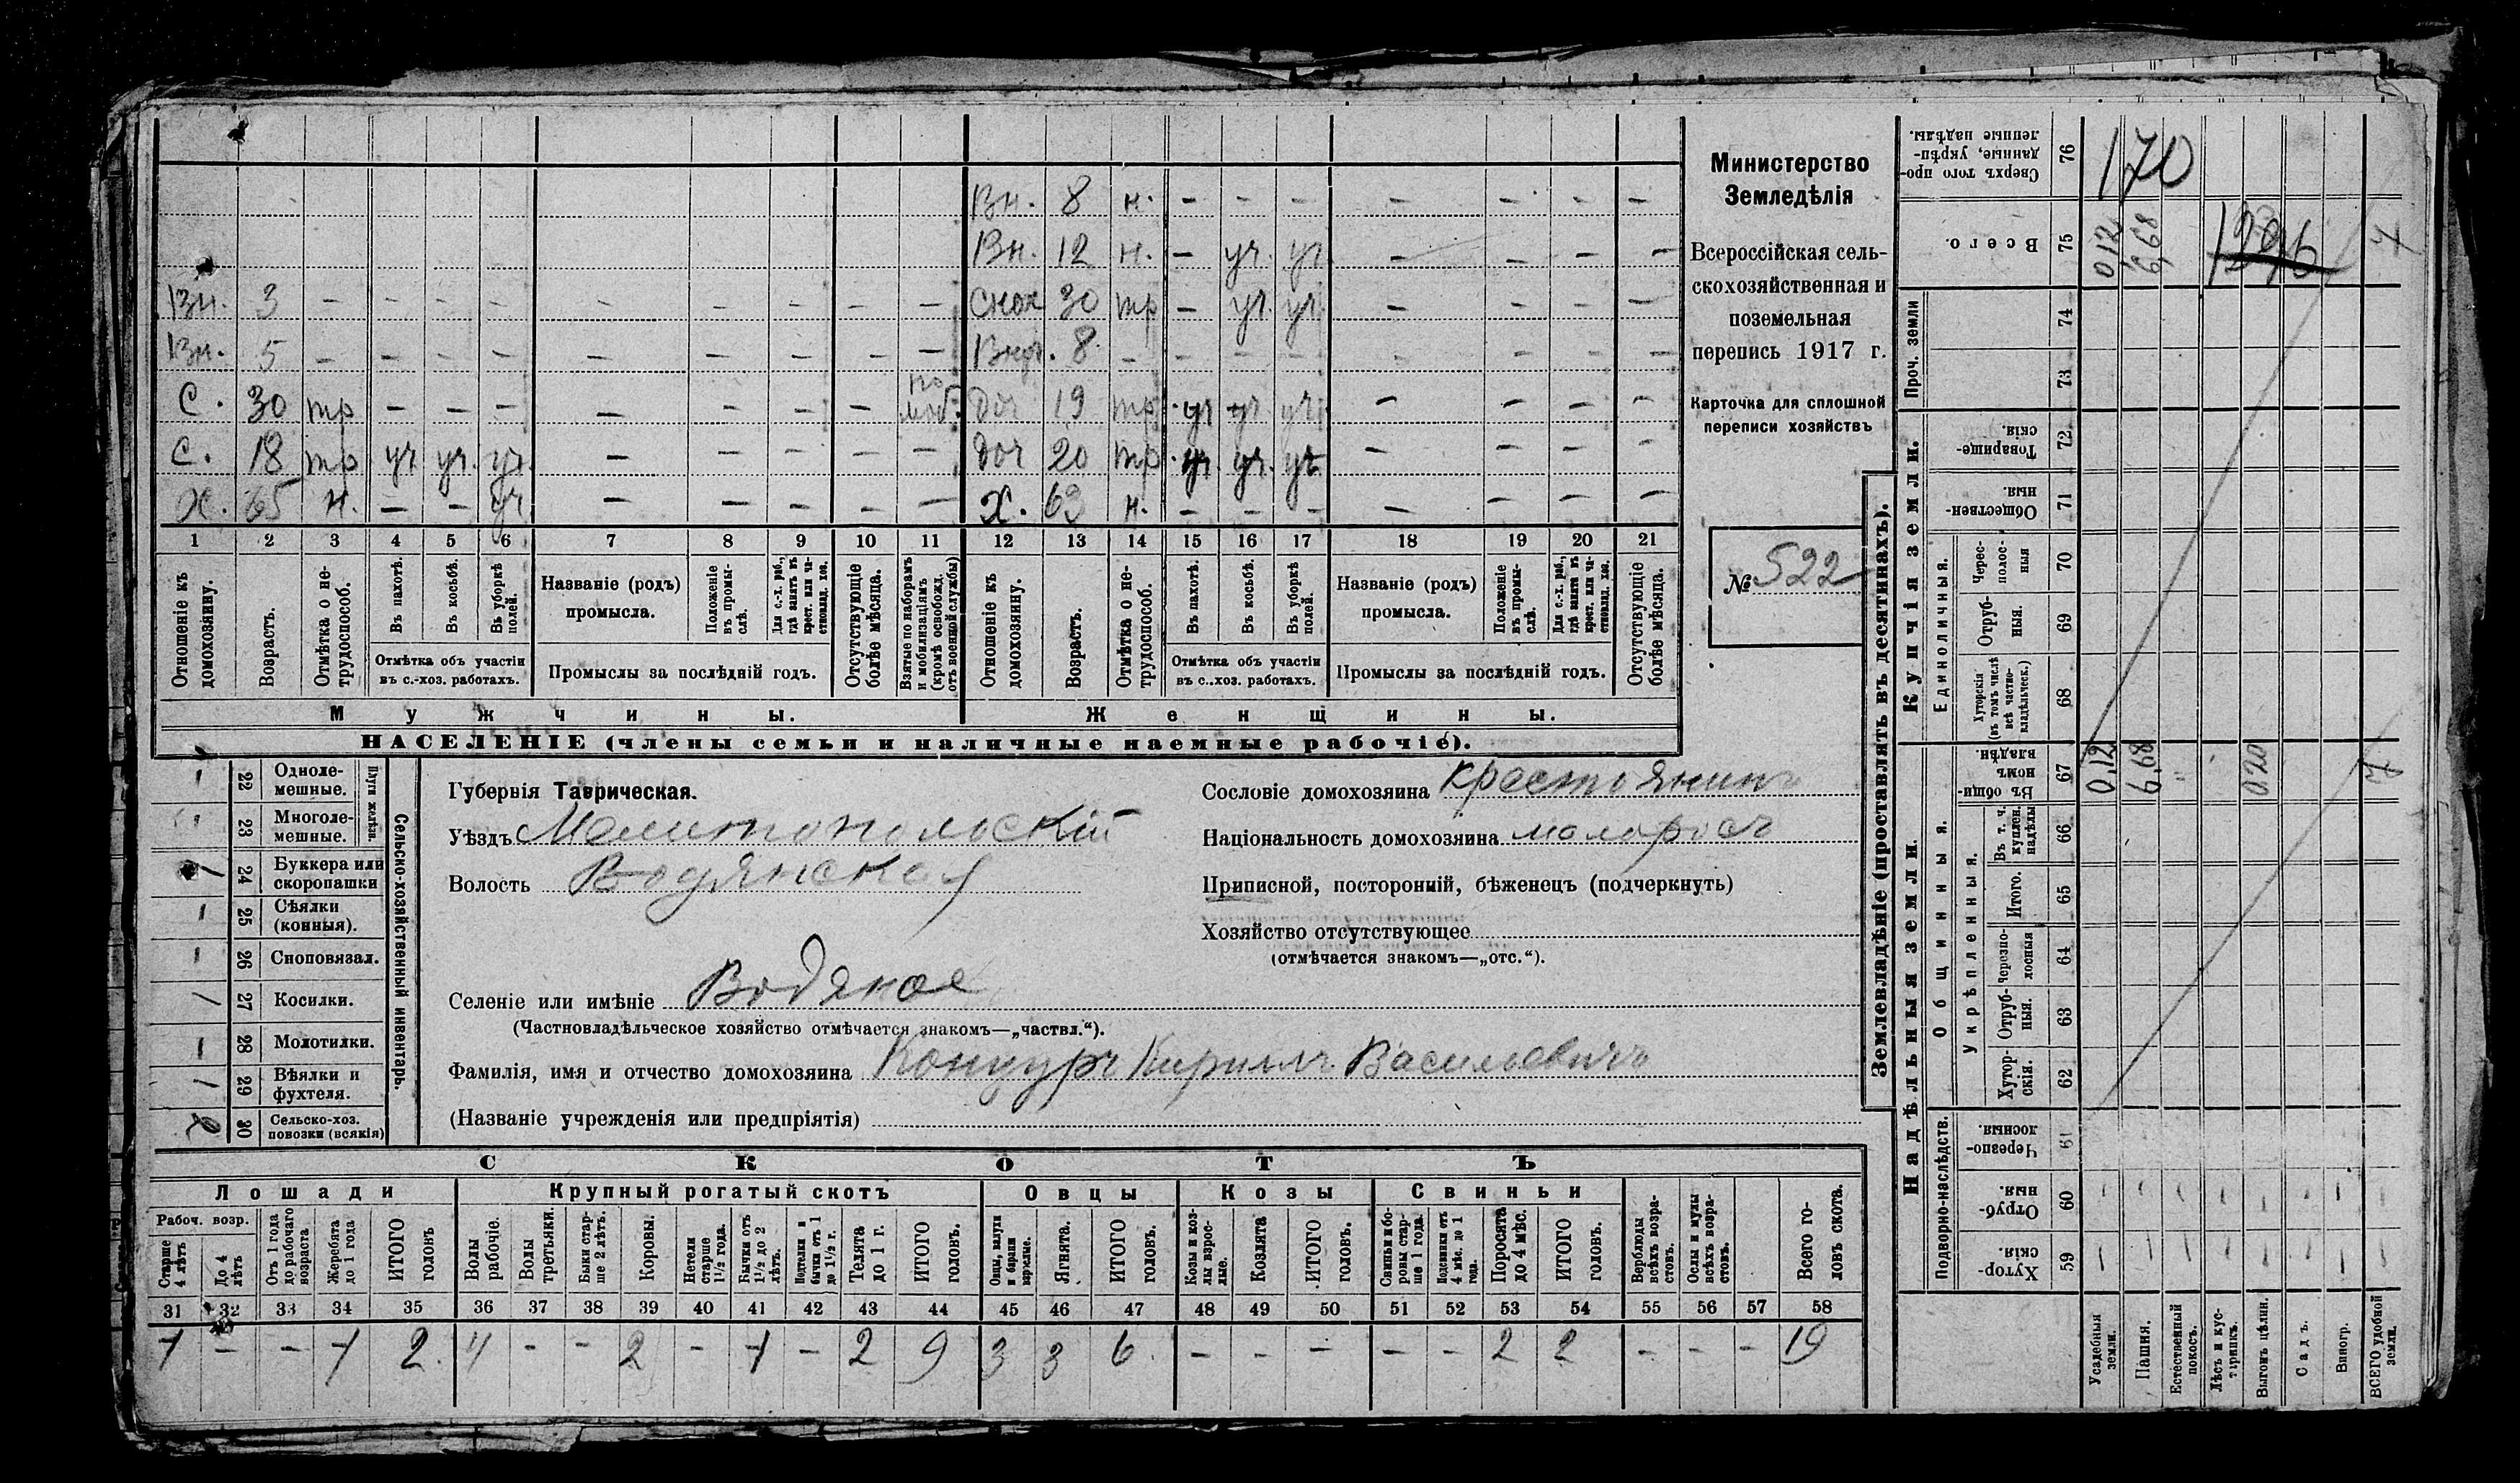 Вн. 8 н. - - - - - - -
Вн. 12 н. - уч. уч - - - -
Вн. 3 - - - - - - - - - снох 30 тр - уч. уч. - - - -
Вн. 5 - - - - - - - - - 8 - - - - - - - -
С. 30 тр - - - - - - - по моб. доч 19 тр уч уч уч - - - -
С. 18 тр уч уч. уч. - - - - - доч 20 тр уч. уч. уч. - - - -
Х. 65 н. - - уч. - - - - - Х. 63 н. - - - - - - -
1 2 3 4 5 6 7 8 9 10 11 12 13 14 15 16 17 18 19 20 21
Отношеніе къ домохозяину.
Возрастъ.
Отмѣтка о нетрудоспособ.
Въ пахотѣ.
Въ косьбѣ.
Въ уборкѣ полей.
Отмѣтка объ участіи
въ с.-хоз. работахъ.
Названіе (родъ)
промысла.
Положеніе въ промыслѣ.
Для с.-х. раб., гдѣ занятъ въ крест. или частновлад. хоз.
Промыслы за послѣдній годъ.
Отсутствующіе болѣе мѣсяца.
Взятые по наборамъ и мобилизаціямъ (кромѣ освобожд. отъ военной службы)
Отношеніе къ домохозяину.
Возрастъ.
Отмѣтка о нетрудоспособ.
Въ пахотѣ.
Въ косьбѣ.
Въ уборкѣ полей.
Отмѣтка объ участіи
въ с..хоз. работахъ.
Названіе (родъ)
промысла.
Положеніе въ промыслѣ.
Для с.-х. раб., гдѣ занята въ крест. или частновлад. хоз.
Промыслы за послѣдній годъ.
Отсутствующіе болѣе мѣсяца.
Мужчины.
Женщины.
НАСЕЛЕНІЕ (члены семьи и наличные наемные рабочіе).
Министерство
Земледѣлія
Всероссійская сель-
скохозяйственная и
поземельная
перепись 1917 г.
Карточка для сплошной
переписи хозяйствъ
№ 522
Сельско-хозяйственный инвентарь.
Плуги желѣзн.
22 Одноле-
мешные.
23 Многоле-
мешные.
24 Буккера или
скоропашки
25 Сѣялки
(конныя).
26 Сноповязал.
27 Косилки.
28 Молотилки.
29 Вѣялки и
фухтеля.
30 Сельско-хоз.
повозки (всякія) 2
Губернія Таврическая.
Уѣздъ Мелитопольскій
Волость Водянская
Селеніе или имѣніе Водяное
(Частновладѣльческое хозяйство отмѣчается знакомъ—„частвл.“).
Фамилія, имя и отчество домохозяина Конкуръ Кириллъ Васильевичъ
(Названіе учрежденія или предпріятія)
Сословіе домохозяина крестьянинъ
Національность домохозяина малоросъ
Приписной, посторонній, бѣженецъ (подчеркнуть)
Хозяйство отсутствующее
(отмѣчается знакомъ—„отс.“).
СКОТЪ
Лошади
Крупный рогатый скотъ
Овцы
Козы
Свиньи
Рабоч. возр.
Старше 4 лѣтъ
До 4 лѣтъ
Отъ 1 года до рабочаго возраста
Жеребята до 1 года
ИТОГО головъ
Волы рабочіе.
Волы третьяки.
Быки старше 2 лѣтъ.
Коровы.
Нетели старше 1½ года.
Бычки отъ 1½ до 2 лѣтъ.
Подтелки и бычки отъ 1 до 1½ г.
Телята до 1 г.
ИТОГО головъ.
Овцы, валухи и бараны взрослые.
Ягнята.
ИТОГО головъ.
Козы и козлы взрослые.
Козлята
ИТОГО головъ.
Свиньи и боровы старше 1 года.
Подсвинки отъ 4 мѣс. до 1 года.
Поросята до 4 мѣс.
ИТОГО головъ.
Верблюды всѣхъ возрастовъ.
Ослы и мулы всѣхъ возрастовъ.
Всего головъ скота.
31 32 33 34 35 36 37 38 39 40 41 42 43 44 45 46 47 48 49 50 51 52 53 54 55 56 57 58
1 - - 1 2. 4 - - 2 - 1 - 2 9 3 3 6 - - - - - 2 2 - - - 19
Землевладѣніе (проставлять въ десятинахъ).
Надѣльныя земли.
Купчія земли.
Проч. земли
Подворно-наслѣдств.
Общинныя.
Укрѣпленныя.
Единоличныя.
Сверхъ того проданные, укрѣпленные надѣлы. 76 170
Всего. 75 0,12 6,68
74
73
Товарищескія. 72
Общественныя. 71
Черезполосныя 70
Отрубныя. 69
Хуторскія (въ томъ числѣ всѣ частновладѣльческ.) 68
Въ общинномъ владѣн. 67 0,12 6,68 0,20 7
Въ т. ч. куплен. надѣлы 66
Итого. 65
Черезполосныя 64
Отрубныя. 63
Хуторскія. 62
Черезполосныя. 61
Отрубныя. 60
Хуторскія. 59
Усадебныя земли.
Пашня.
Естественный покосъ.
Лѣсъ и кустарникъ.
Выгонъ цѣлин.
Садъ.
Виногр.
ВСЕГО удобной земли.